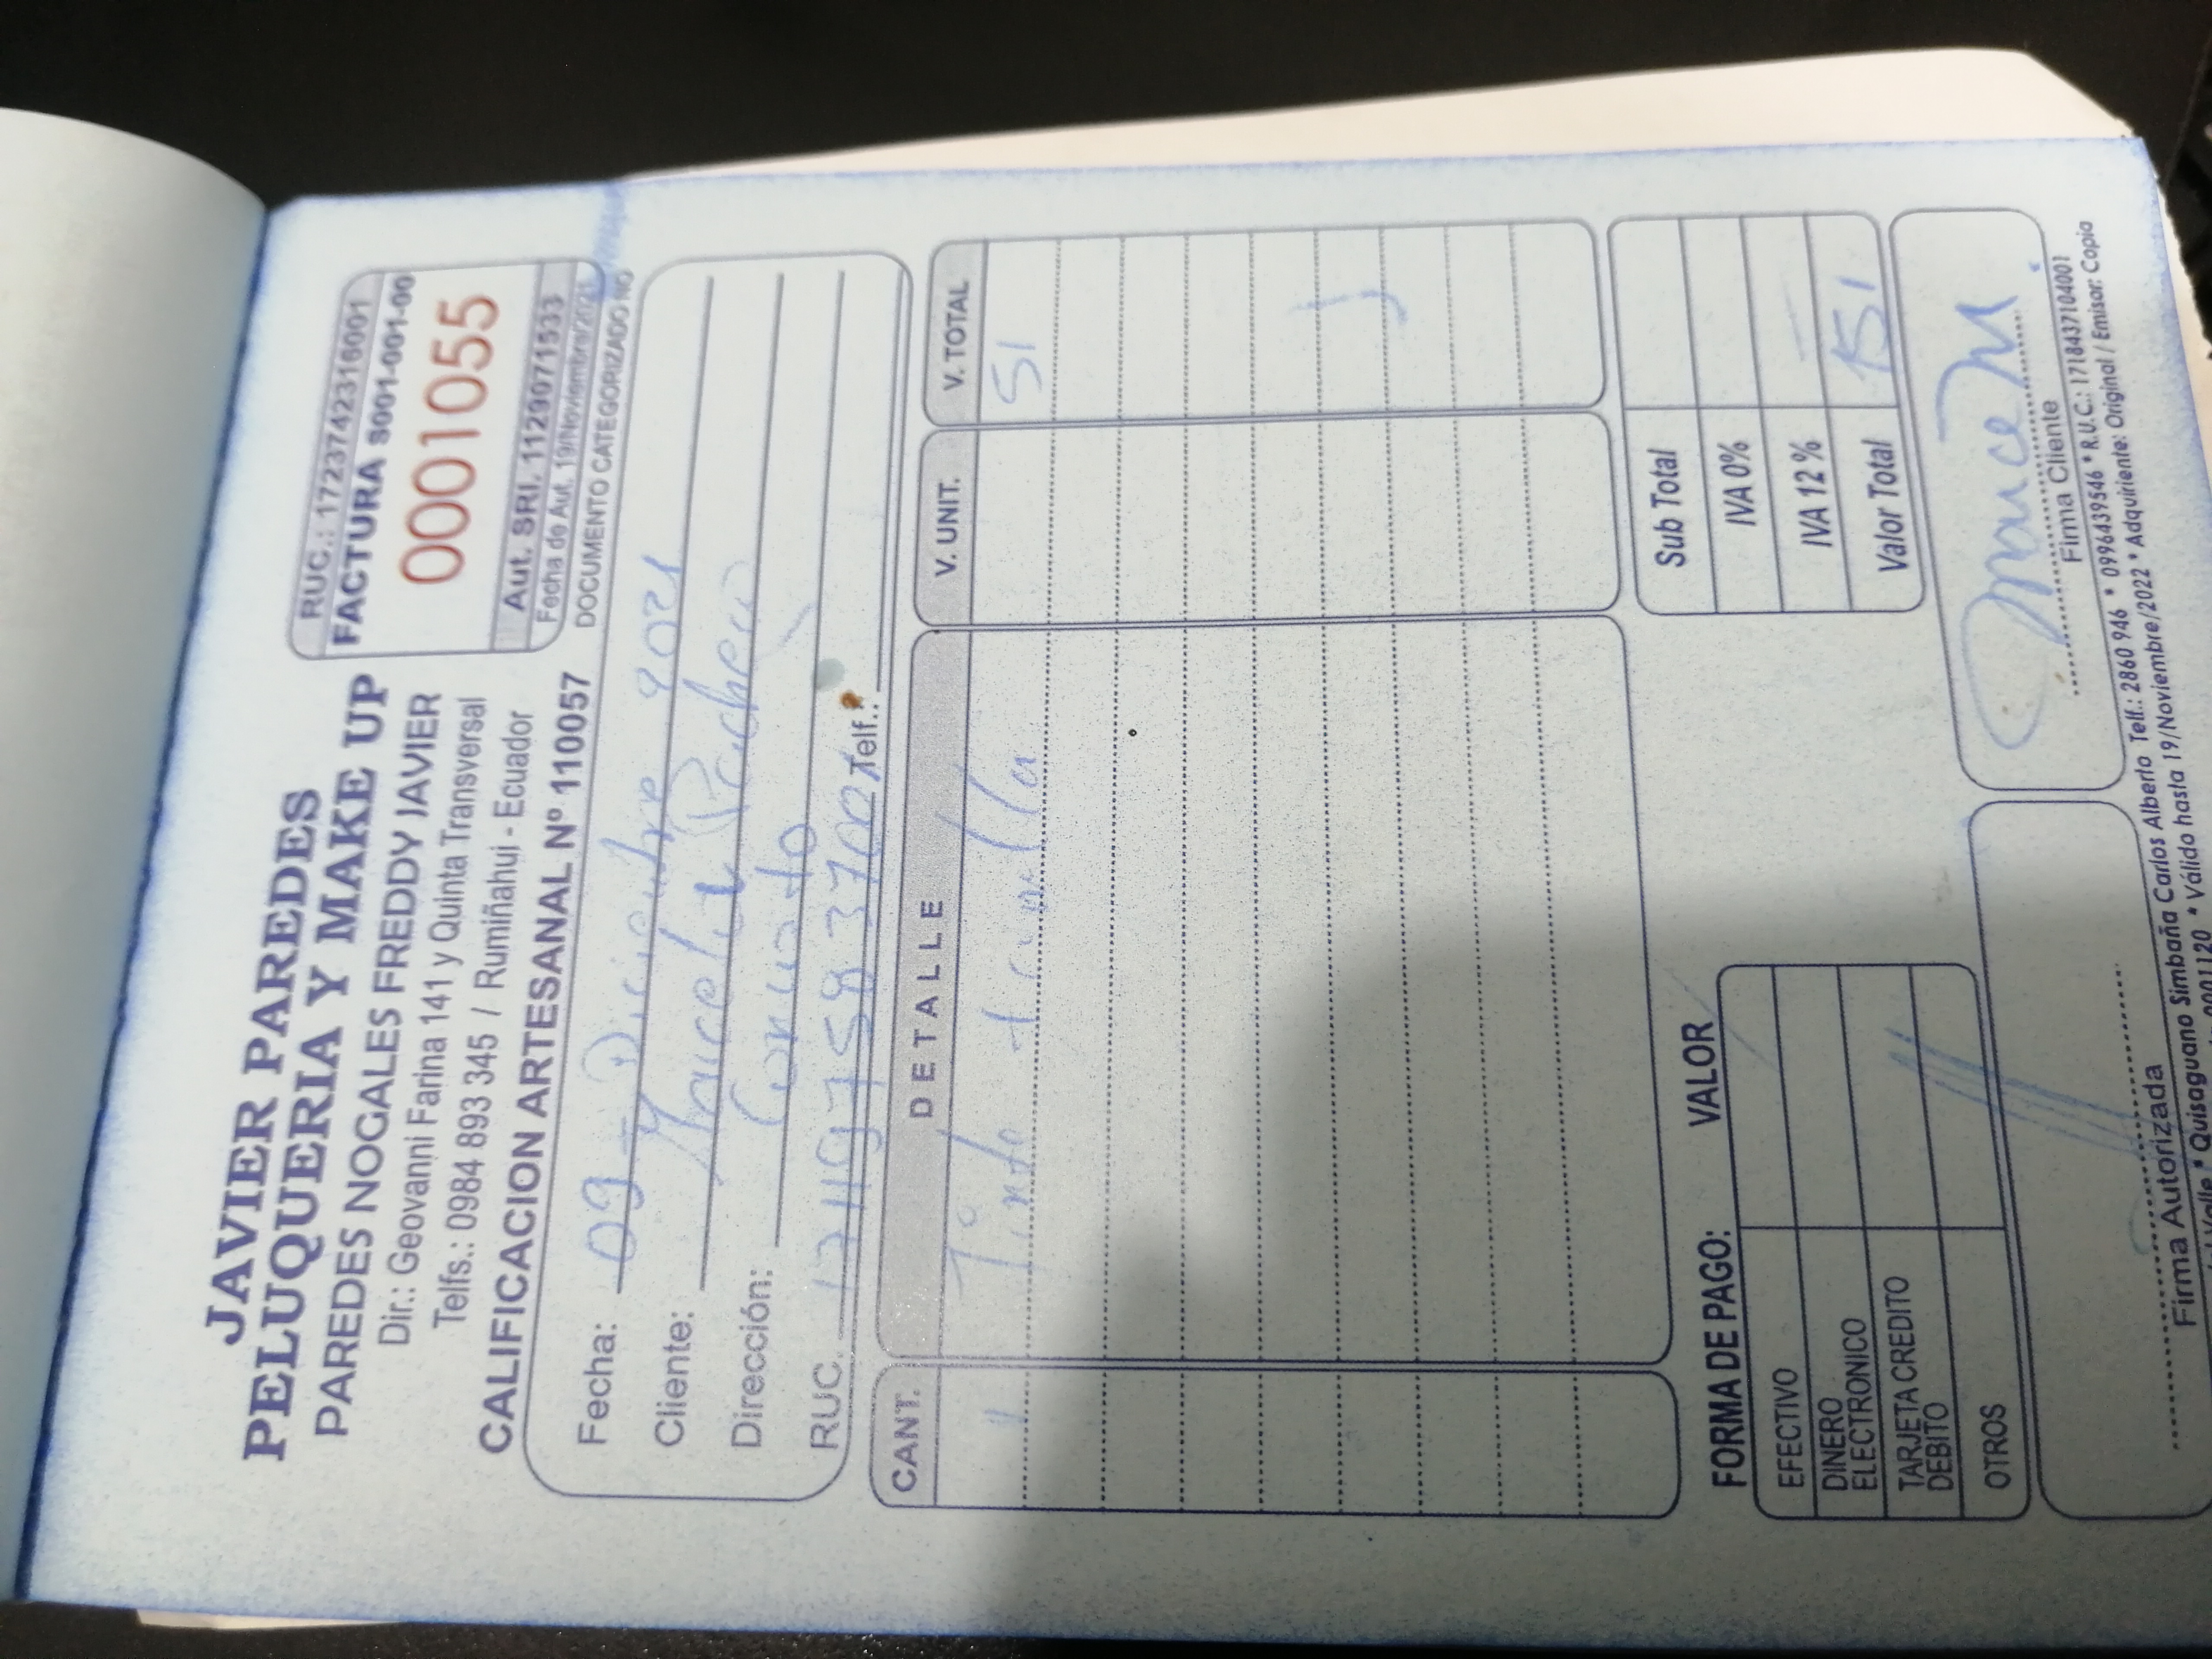 JAVIER PAREDES
PELUQUERIA Y MAKE UP
PAREDES NOGALES FREDDY JAVIER
Dir.: Geovanni Farina 141 y Quinta Transversal
Telfs.: 0984 893 345 / Rumiñahui - Ecuador
CALIFICACION ARTESANAL Nº 110057
RUC.: 1723742316001
FACTURA S001-001-00
0001055
Aut. SRI. 1129071533
Fecha de Aut. 19/Noviembre/2021
DOCUMENTO CATEGORIZADO NO
Fecha: 09 - Diciembre 2021
Cliente: Marcelo Pacheco
Dirección: Conocoto
RUC. Telf.:
CANT. DETALLE V. UNIT. V. TOTAL
1 Tinto 51
FORMA DE PAGO: VALOR
EFECTIVO
DINERO ELECTRONICO
TARJETA CREDITO DEBITO
OTROS
Sub Total
IVA 0%
IVA 12 %
Valor Total 51
Firma Autorizada
Firma Cliente
Quisaguano Simbaña Carlos Alberto Telf.: 2860 946 * 0996439546 * R.U.C.: 1718437104001
* Válido hasta 19/Noviembre/2022 * Adquiriente: Original / Emisor: Copia